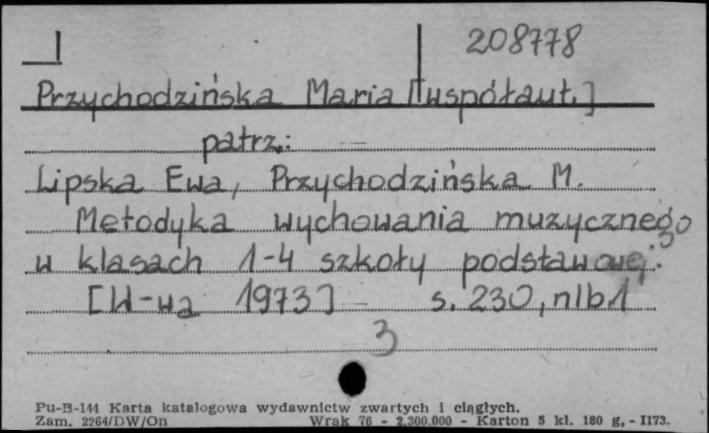 208778
Przychodzińska Maria [współaut.]
patrz:
Lipska Ewa, Przychodzińska M.
Metodyka wychowania muzycznego
w klasach 1-4 szkoły podstawowej.
[W-wa 1973] s. 230, nlb 1
3
Pu-B-144 Karta katalogowa wydawnictw zwartych i ciągłych.
Zam. 2264/DW/On Wrak 76 - 2.300.000 - Karton 5 kl. 180 g, - II73.